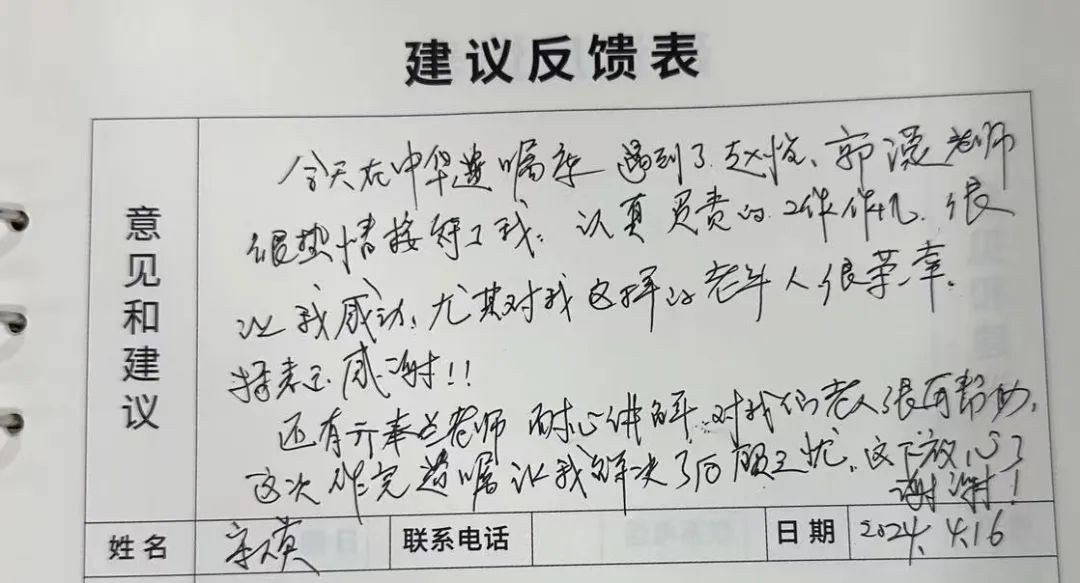 建议反馈表
意见和建议
今天在中华遗嘱库遇到了赵悦、郭滢老师
很热情接待了我。认真负责的工作作风。很
让我感动。尤其对我这样的老年人很荣幸。
特表示感谢!!
还有齐奉芝老师耐心讲解。对我们老人很有帮助。
这次作完遗嘱让我解决了后顾之忧。这下放心了
谢谢!
姓名 联系电话 日期 2024.4.16